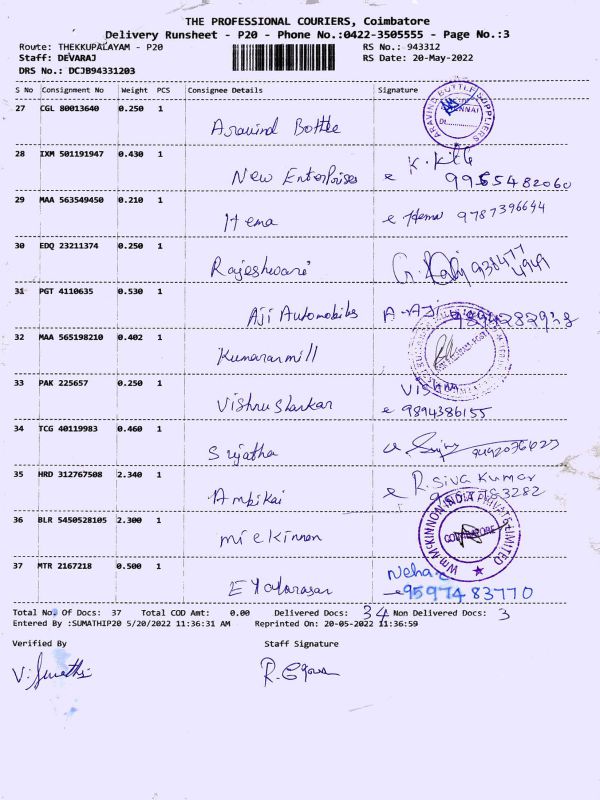 THE PROFESSIONAL COURIERS, Coimbatore
Delivery Runsheet - P20 - Phone No.:0422-3505555 - Page No.:3
Route: THEKKUPALAYAM - P20 RS No.: 943312
Staff: DEVARAJ RS Date: 20-May-2022
DRS No.: DCJB94331203
S No Consignment No Weight PCS Consignee Details Signature
27 CGL 80013640 0.250 1
Aravind Bottle ARAVIND BOTTLE SUPPLIERS
28 IXM 501191947 0.430 1
New Enterprises 9965482060
29 MAA 563549450 0.210 1
Hema Hema 9787396644
30 EDQ 23211374 0.250 1
Rajeshwari
31 PGT 4110635 0.530 1
AJi Automobiles
32 MAA 565198210 0.402 1
Kumararmill
33 PAK 225657 0.250 1
Vishnu Shankar 9894386155
34 TCG 40119983 0.460 1
Sujatha
35 HRD 312767508 2.340 1
Ambikai R. Siva Kumar
36 BLR 5450528105 2.300 1
mickinnon Wm. McKINNON INDIA PRIVATE LIMITED COIMBATORE
37 MTR 2167218 0.500 1
Nehar
9597483770
Total No. Of Docs: 37 Total COD Amt: 0.00 Delivered Docs: 34 Non Delivered Docs: 3
Entered By :SUMATHIP20 5/20/2022 11:36:31 AM Reprinted On: 20-05-2022 11:36:59
Verified By Staff Signature